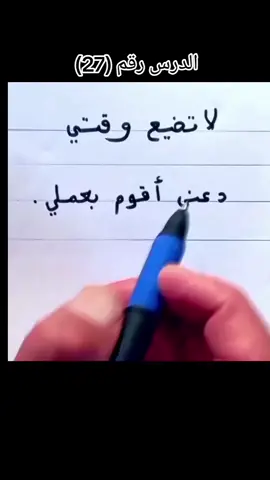 الدرس رقم (27)
لا تضيع وقتي
دعني أقوم بعملي.